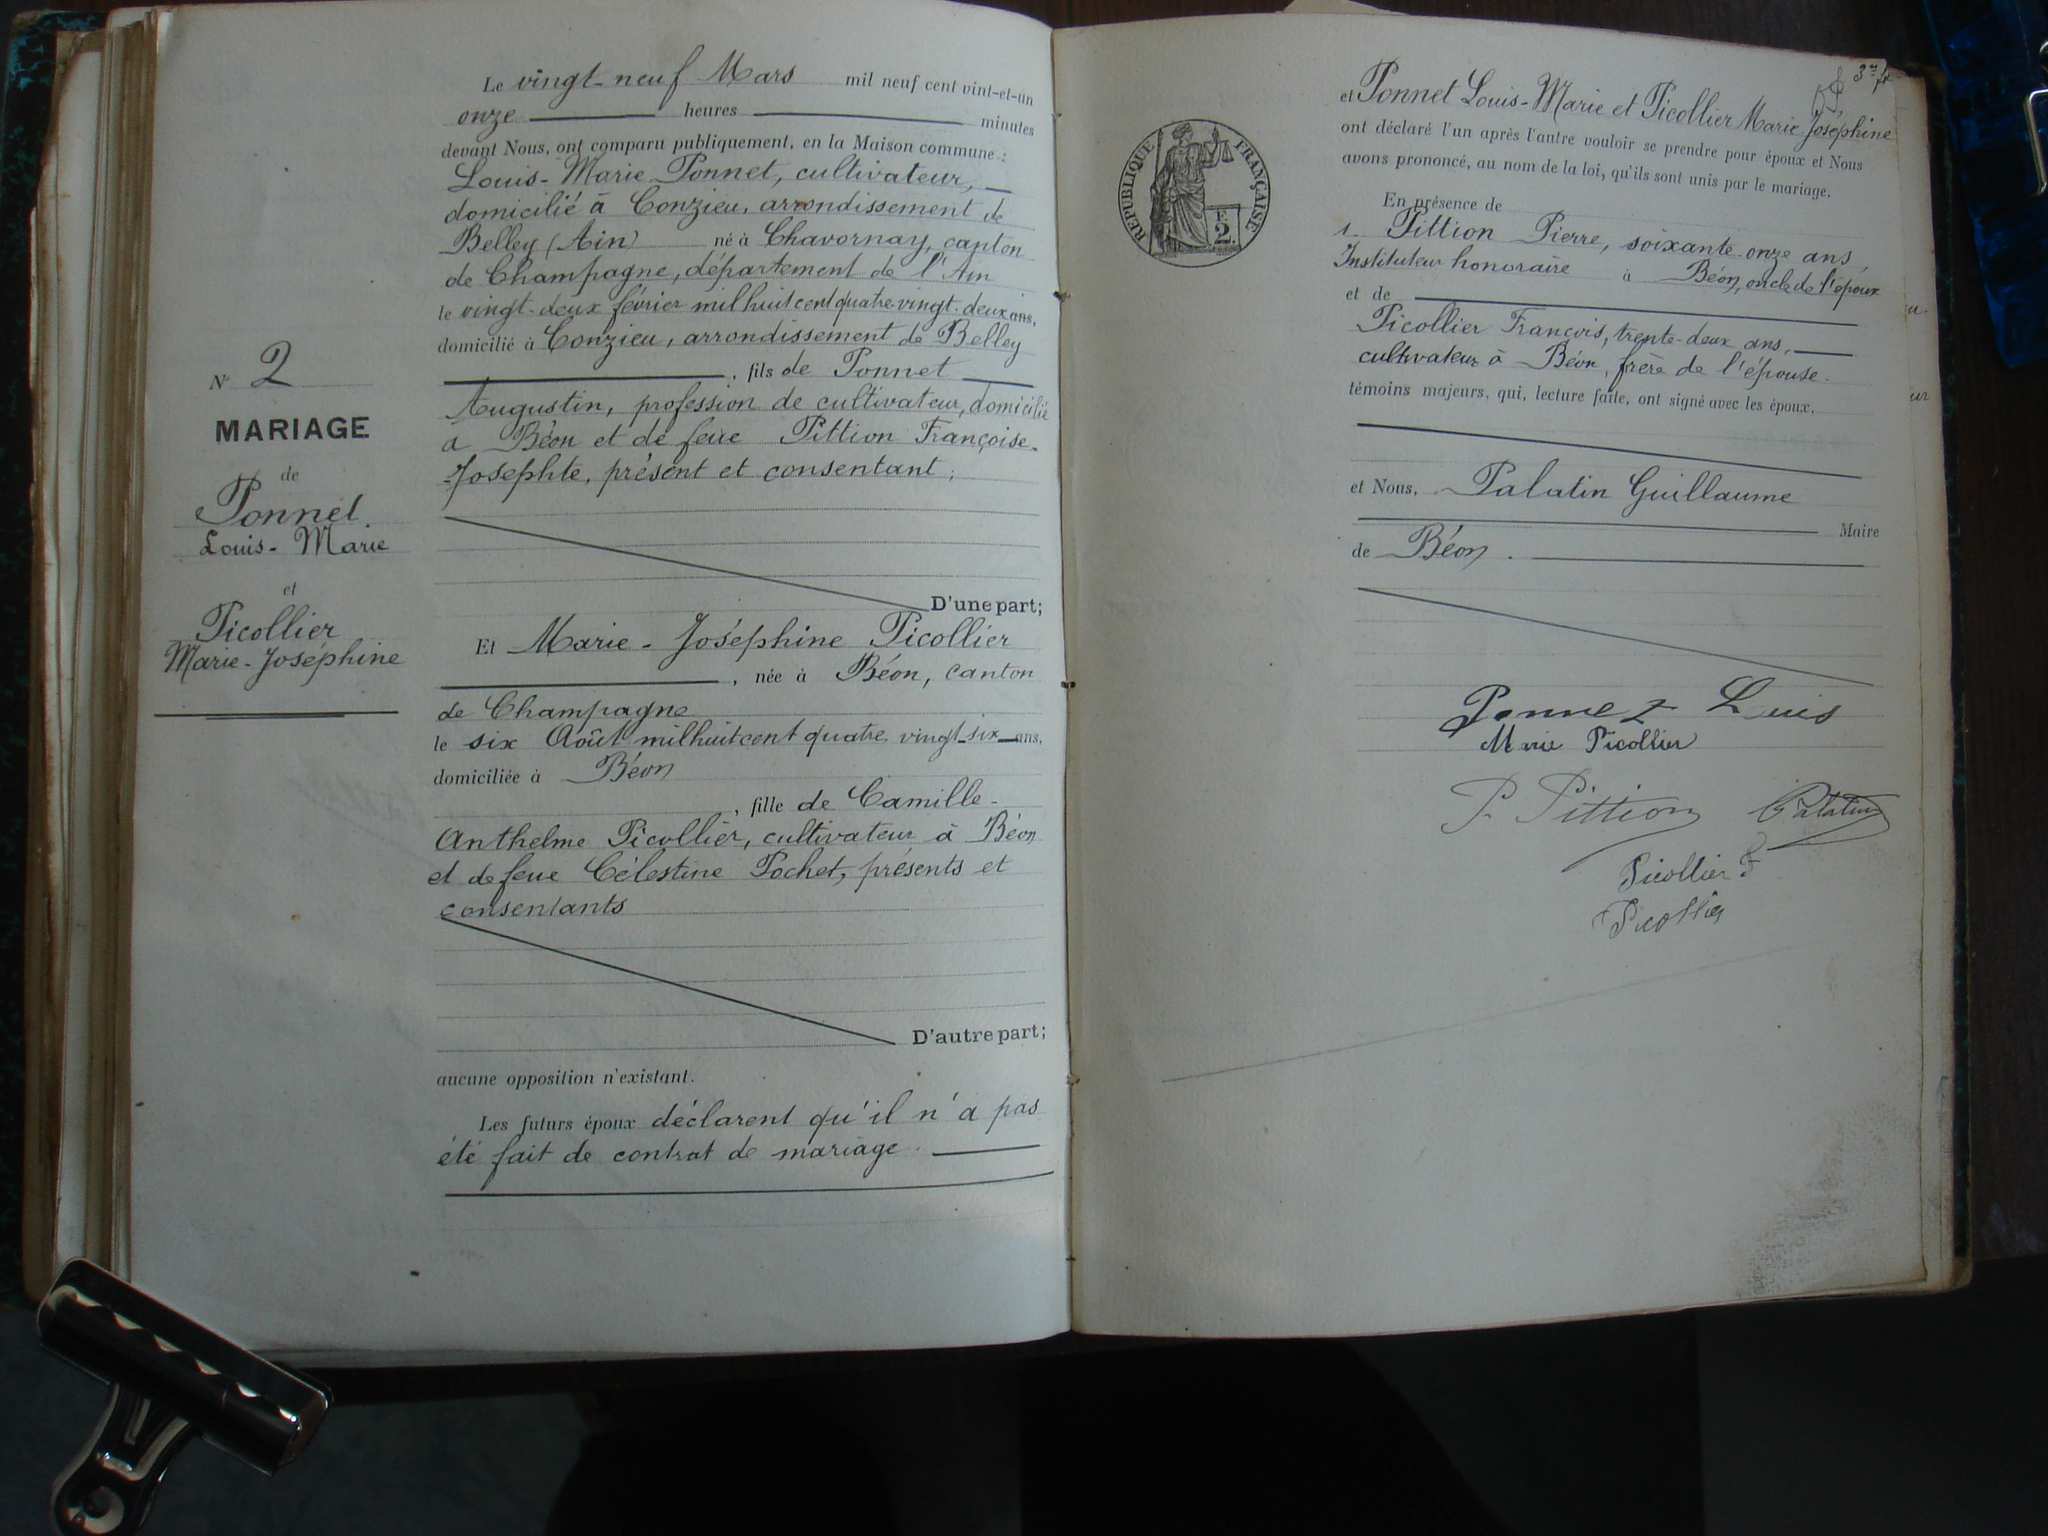 N° 2
MARIAGE
de
Ponnet
Louis-Marie
et
Picollier
Marie-Joséphine
Le vingt-neuf Mars mil neuf cent vint-et-un
onze heures minutes
devant Nous, ont comparu publiquement, en la Maison commune :
Louis-Marie Ponnet, cultivateur,
domicilié à Conzieu, arrondissement de
Belley (Ain) né à Chavornay, canton
de Champagne, département de l'Ain
le vingt-deux février mil huit cent quatre-vingt-deux ans,
domicilié à Conzieu, arrondissement de Belley
, fils de Ponnet
Augustin, profession de cultivateur, domicilié
à Béon et de feue Pittion Françoise-
Josephte, présent et consentant ;
D'une part;
Et Marie-Joséphine Picollier
, née à Béon, canton
de Champagne
le six Août mil huit cent quatre vingt-six ans,
domiciliée à Béon
, fille de Camille-
Anthelme Picollier, cultivateur à Béon
et de feue Célestine Pochet, présents et
consentants
D'autre part;
aucune opposition n'existant.
Les futurs époux déclarent qu'il n'a pas
été fait de contrat de mariage.
RÉPUBLIQUE FRANÇAISE
F.
2.
3
et Ponnet Louis-Marie et Picollier Marie Joséphine
ont déclaré l'un après l'autre vouloir se prendre pour époux et Nous
avons prononcé, au nom de la loi, qu'ils sont unis par le mariage.
En présence de
1. Pittion Pierre, soixante-onze ans,
Instituteur honoraire à Béon, oncle de l'époux
et de
Picollier François, trente-deux ans,
cultivateur à Béon, frère de l'épouse.
témoins majeurs, qui, lecture faite, ont signé avec les époux.
et Nous, Palatin Guillaume
Maire
de Béon.
Ponnet Louis
Marie Picollier
P. Pittion Palatin
Picollier F
Picollier